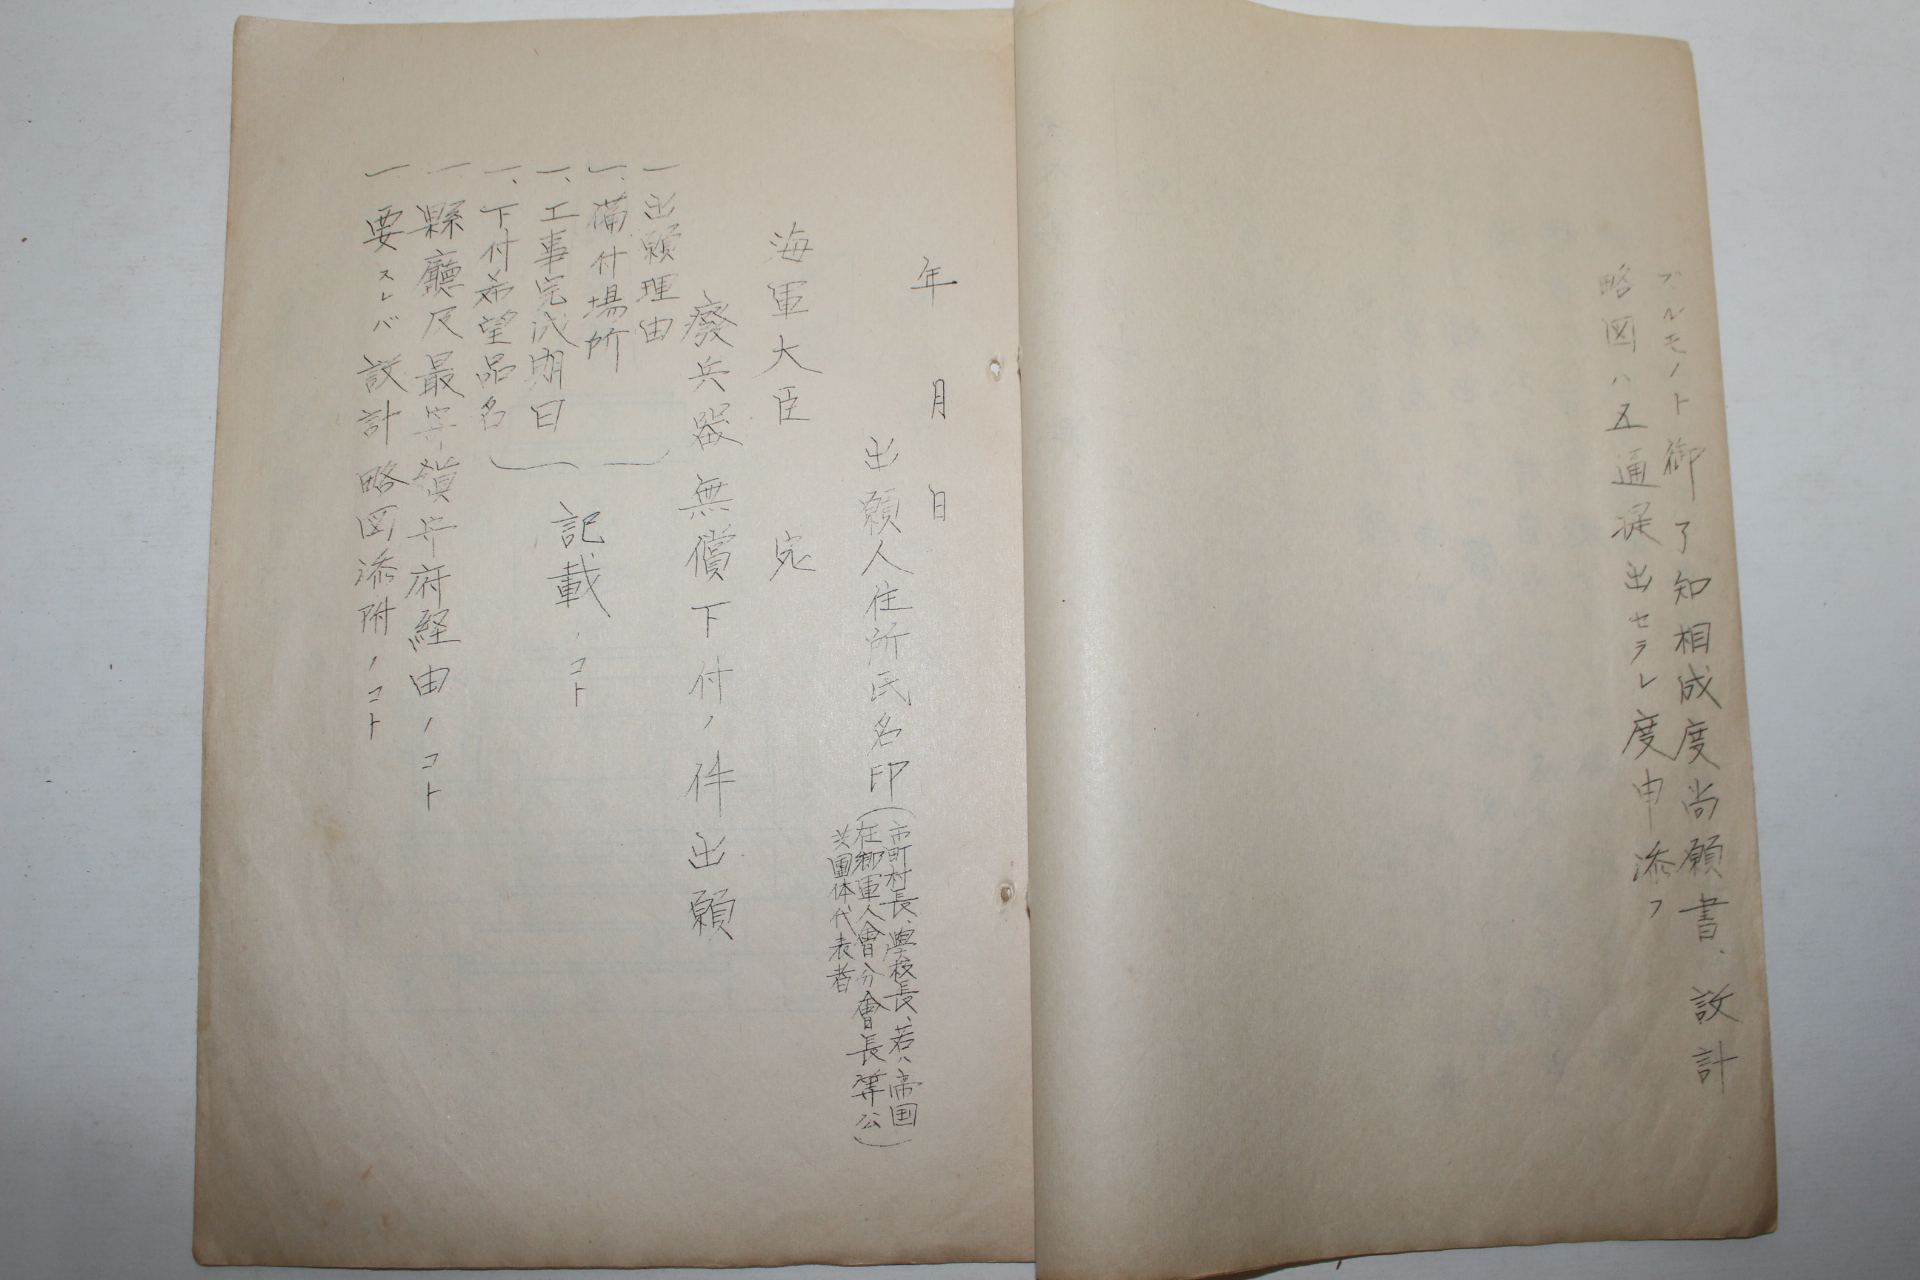 ブルモノト御了知相成度尚願書、設計
略図ハ五通提出セラレ度申添フ
年 月 日
出願人住所氏名印(市町村長、學校長、若ハ帝国
在郷軍人會分會長等公
共團体代表者)
海軍大臣 宛
廢兵器無償下付ノ件出願
一出願理由
一、備付場所
一、工事完成期日
一、下付希望品名
記載ノコト
一縣廳及最寄鎮守府経由ノコト
一要スレバ設計略図添附ノコト